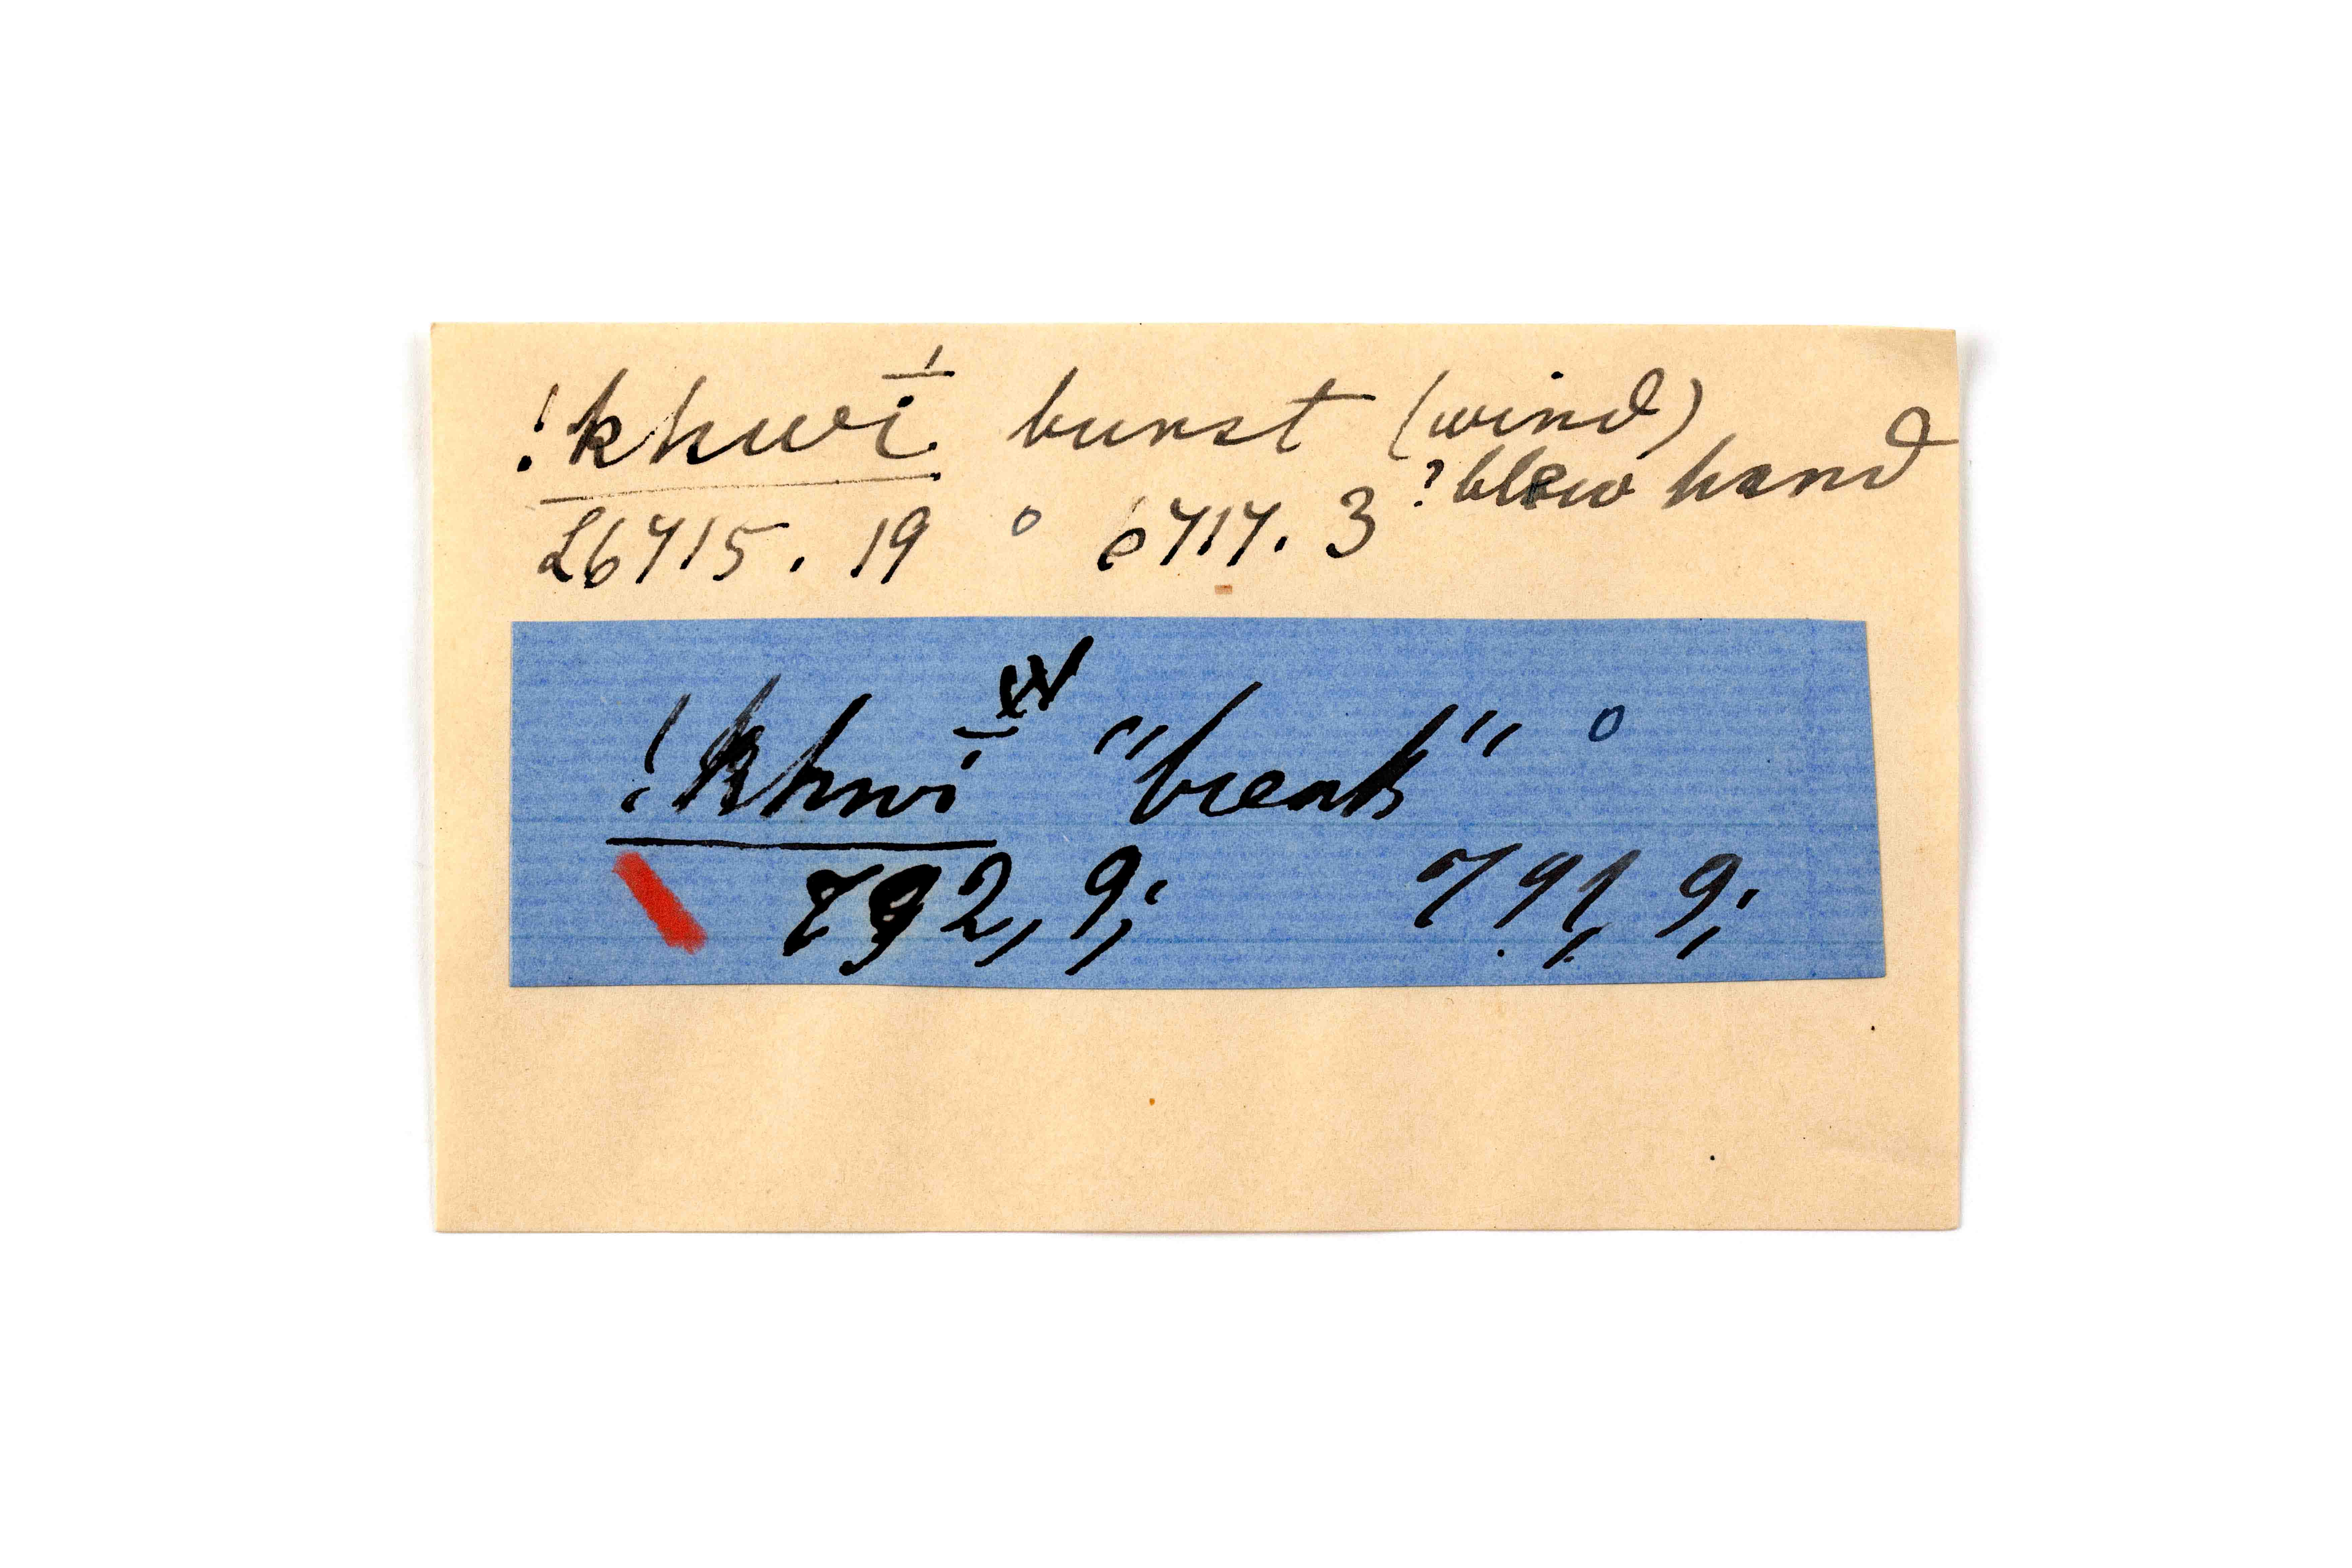 !khwī́ burst (wind)
? blew hard
L6715. 19 ° 6717. 3
!khwī "break" °
792, 9; 791, 9;